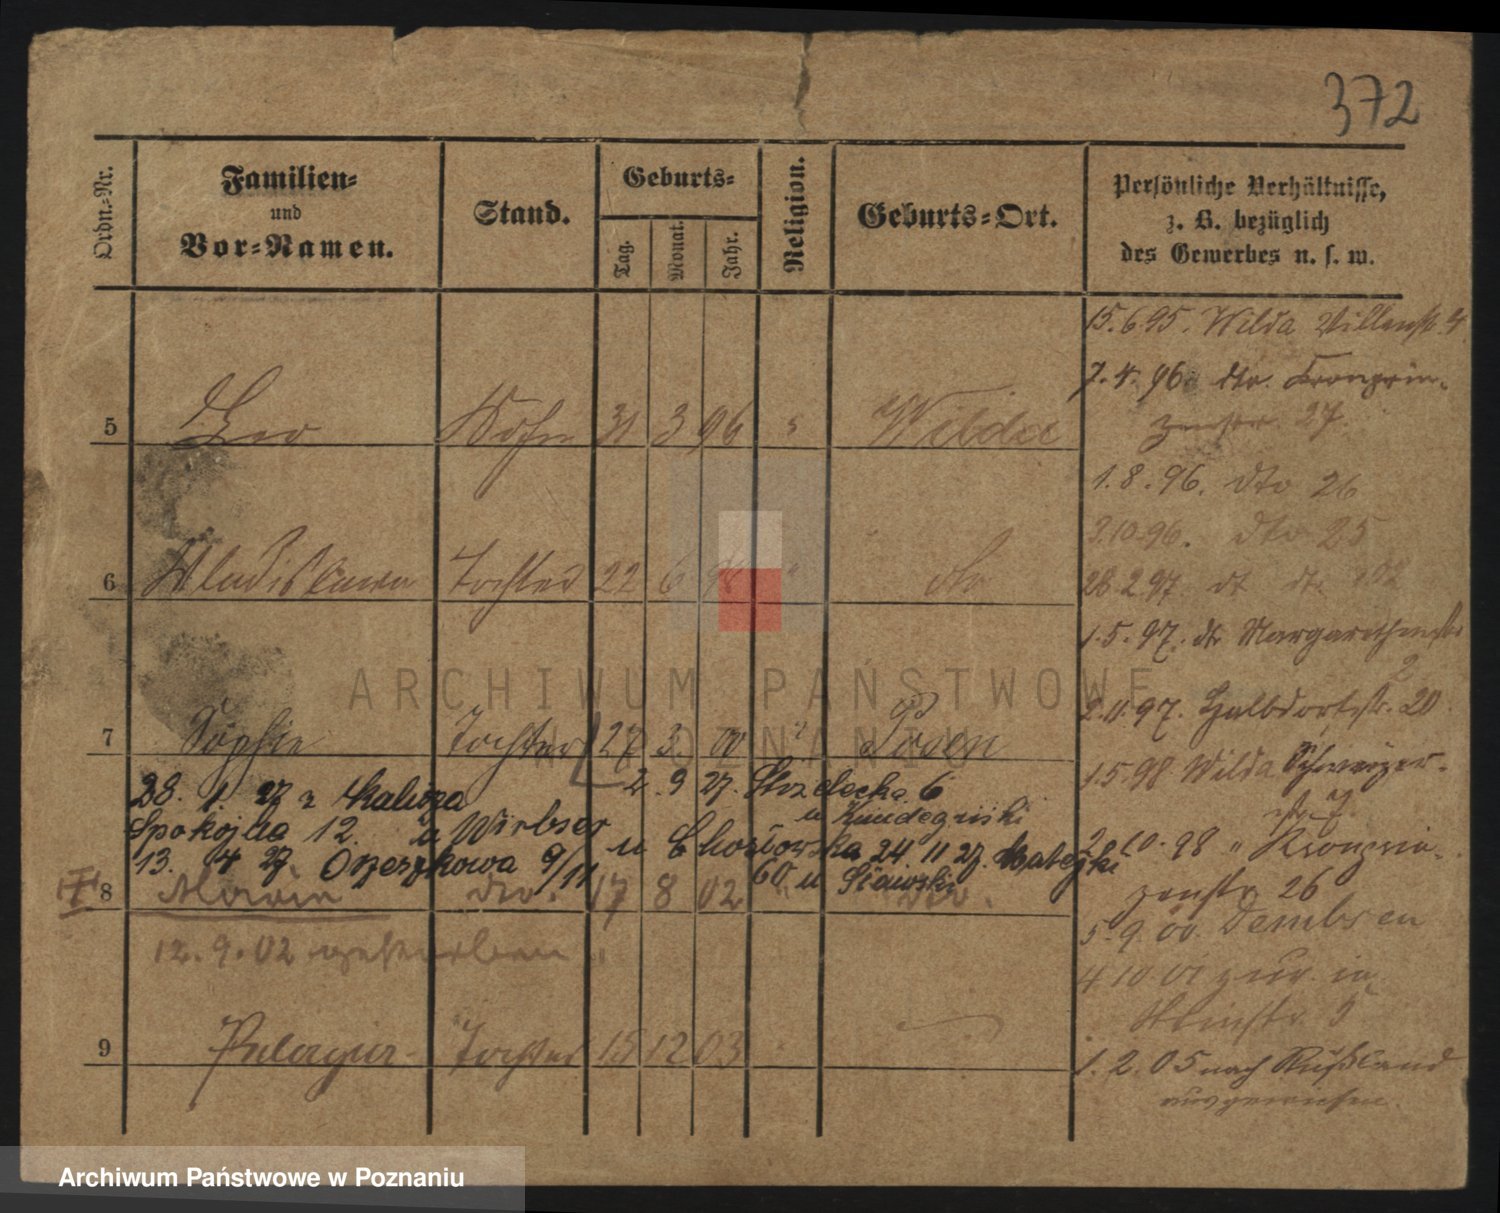 372
Ordn.-Nr.
Familien-
und
Vor-Namen.
Stand.
Geburts-
Tag.
Monat.
Jahr.
Religion.
Geburts-Ort.
Persönliche Verhältnisse,
z. B. bezüglich
des Gewerbes u. s. w.
5 Leo Sohn 31 3 96 " Wilda
6 Wladislawa Tochter 22 6 98 " dto
7 Sophie Tochter 27 3 00 " Posen
28. 1. 27 z Kalisza
Spokojna 12. u Wirbser
13. 4 27 Orzeszkowa 9/11
2. 9 27. Strzelecka 6
u
u Chosłowska 24. 11 27. Matejki
60 u Sławski
8 Maria dto. 17 8 02 " dto.
12. 9. 02 gestorben.
9 Pelagia Tochter 15 12 03 "
15.6.95. Wilda Villenstr. 4
7. 4. 96. dto. Kronprin-
zenstr. 27.
1. 8. 96. dto 26
2.10.96. dto 25
28 2.97. dt dt. 102
1. 5. 97. dt Margarethenstr
2
2.11.97. Halbdorfstr. 20.
1.5.98 Wilda Schweizer-
str 7
2. 10. 98 " Kronprin-
zenstr 26
5. 9. 00. Dembsen
4 10 01 zur. in
5
1. 2. 05 nach Rußland
ausgewiesen.
ARCHIWUM PAŃSTWOWE
W POZNANIU
Archiwum Państwowe w Poznaniu